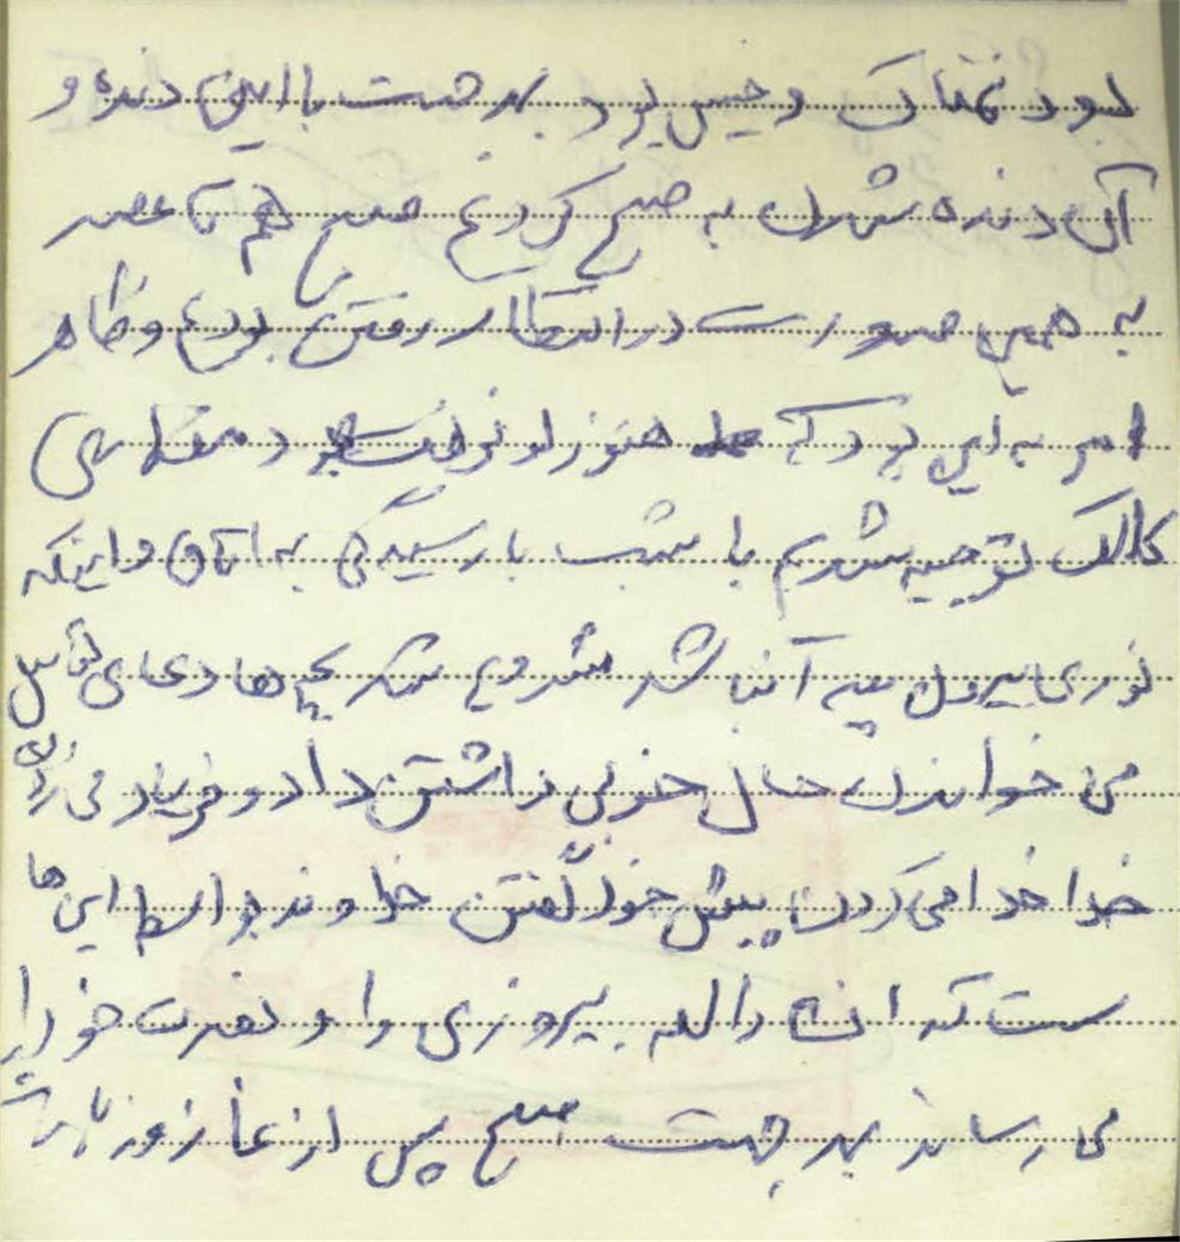 بود نمناک و خیس بود بهر جهت با این دنده و
آن دنده شدن به صبح کردیم صبح هم تا عصر
به همین صورت در انتظار رفتن بودیم و ظاهر
امر به این بود که هنوز در منطقه ای
کالک توجیه شدیم با شب با رسیدگی به اتاق و اینکه
نوری بیرون پیدا نباشد شروع شد بچه ها دعای توسل
می خواندن حال خوبی داشتن داد و فریاد می زدن
خدا خدا می کردن پیش خود گفتن خداوند بواسطه این ها
ست که انشاالله پیروزی را و نصرت خود را
می رساند بهر جهت صبح پس از نماز و زیارت